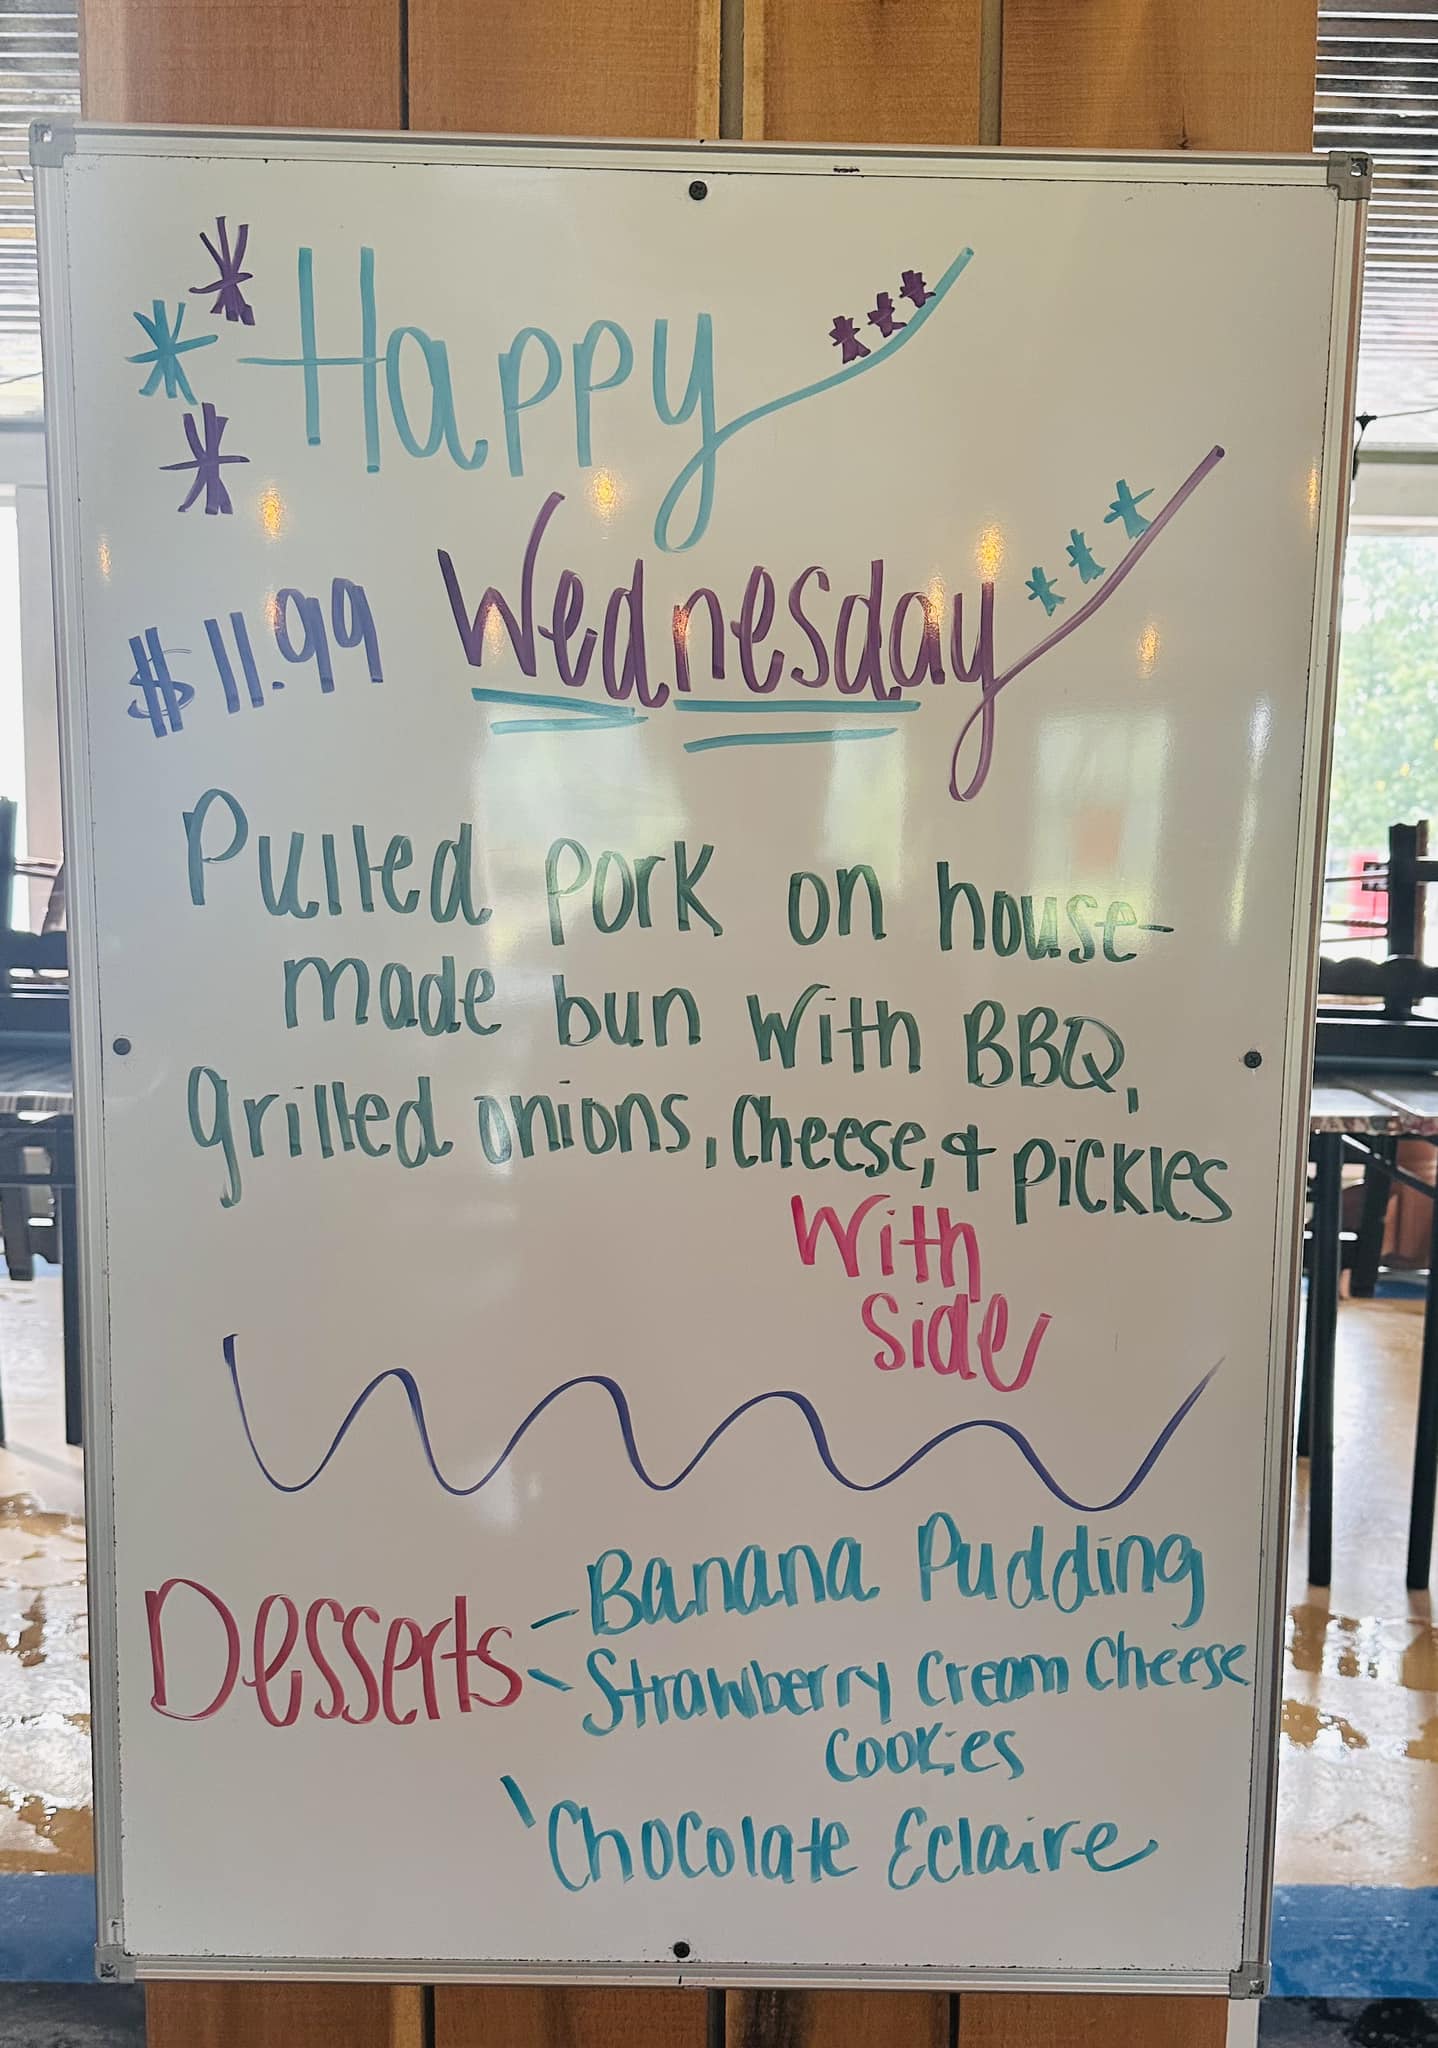 Happy
$11.99 Wednesday
Pulled pork on house-
made bun with BBQ,
grilled onions, cheese, & pickles
With
Side
Desserts - Banana Pudding
- Strawberry Cream Cheese
Cookies
- Chocolate Eclaire